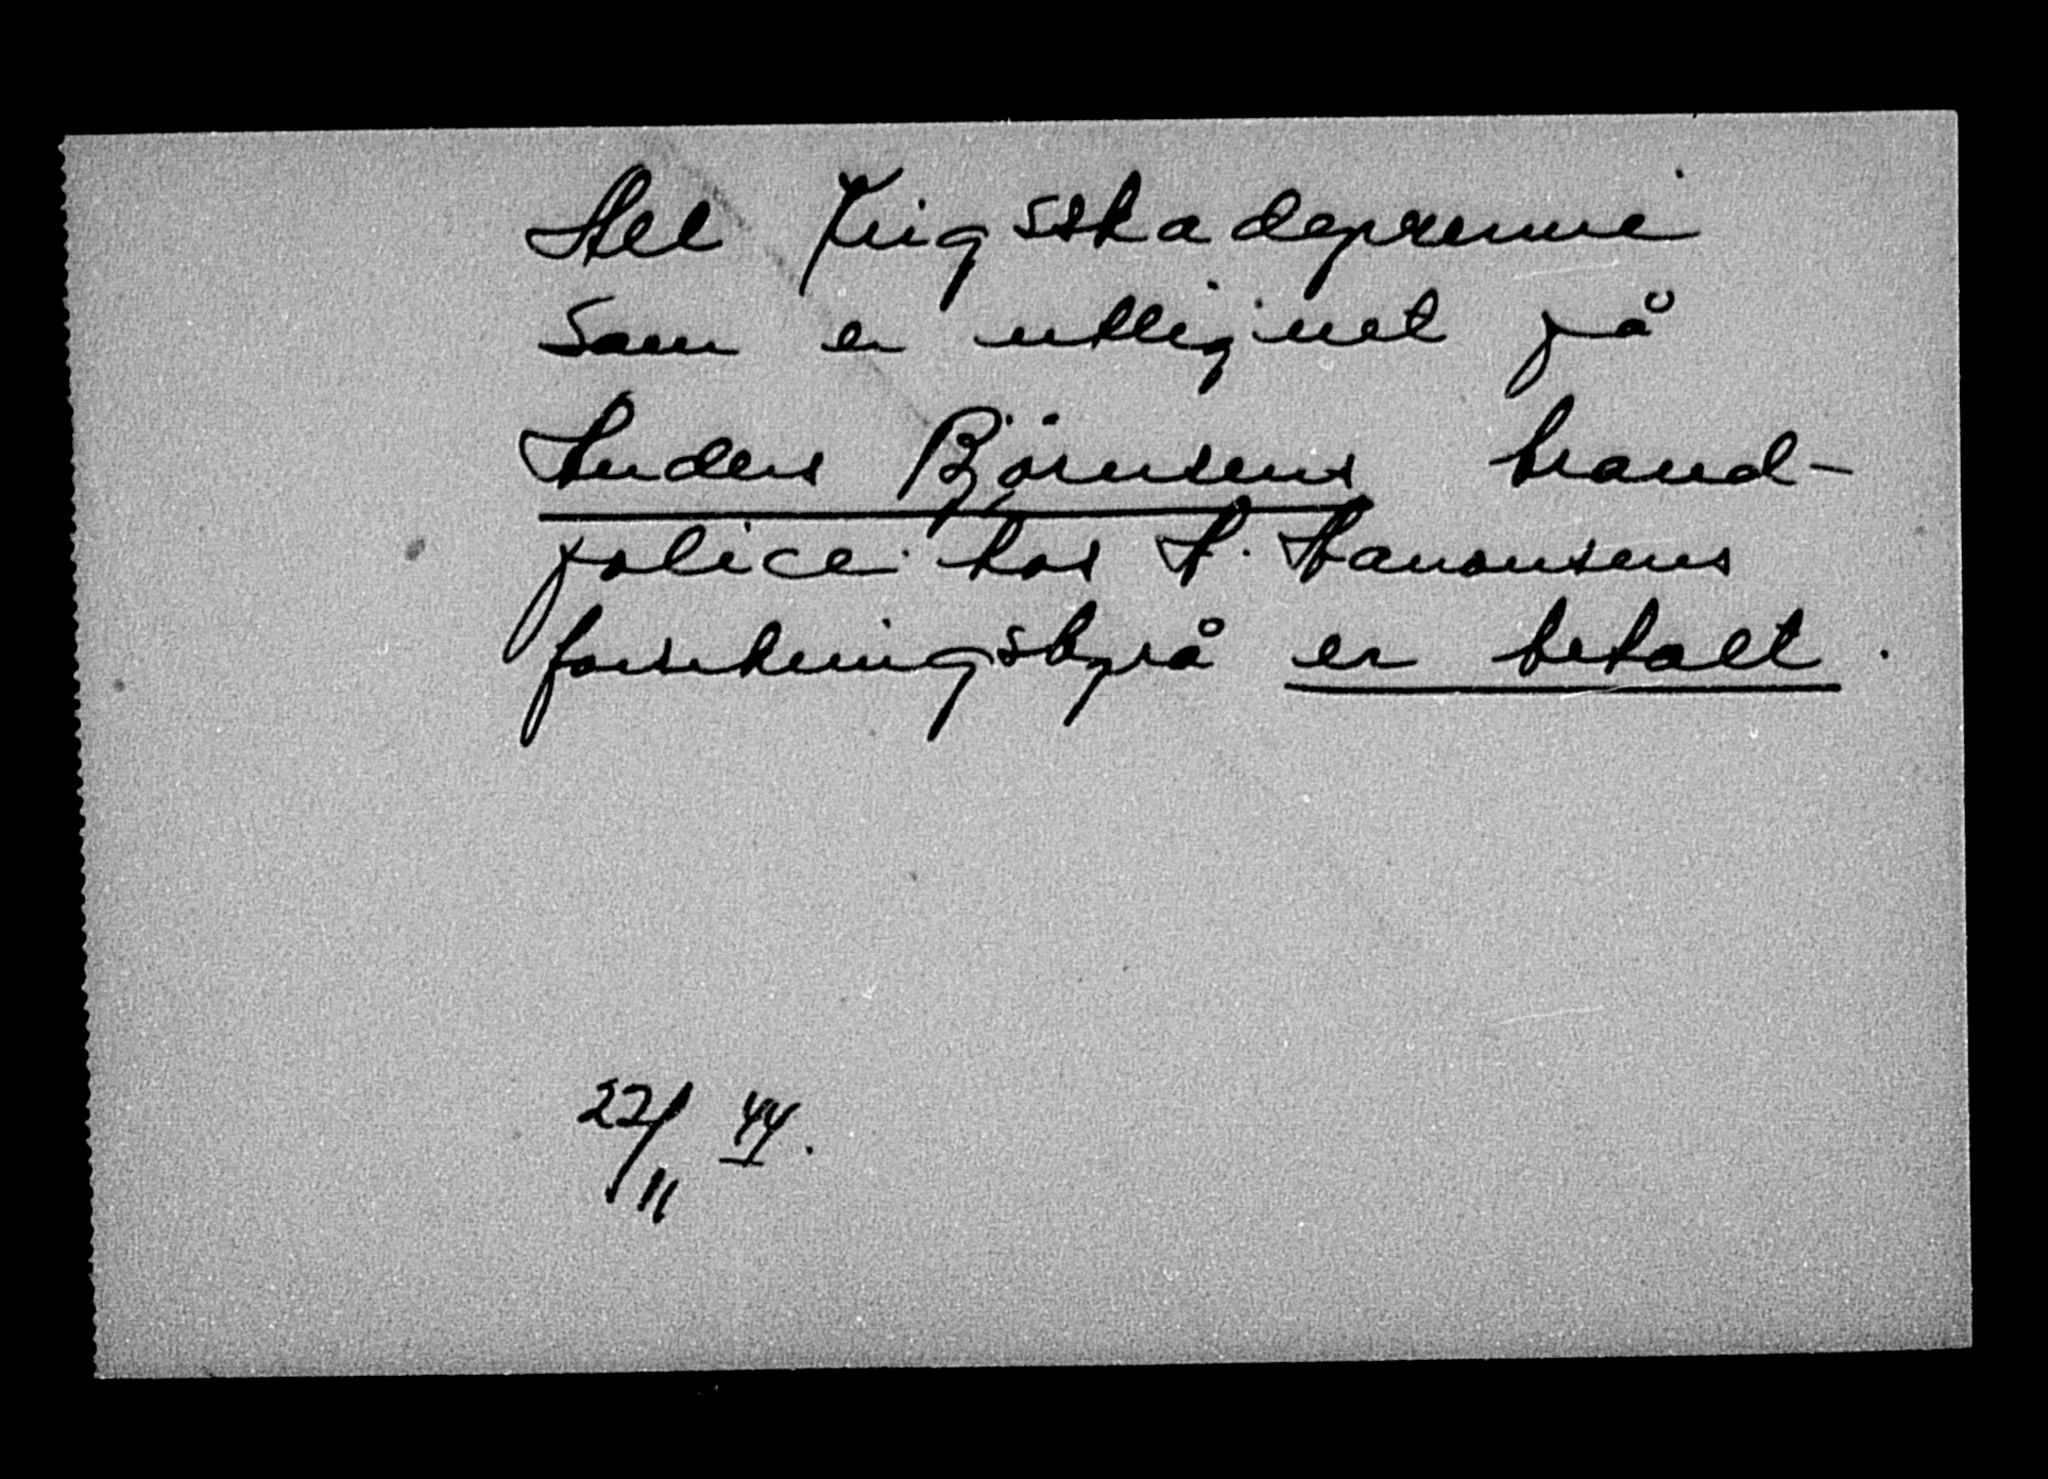 All Krigsskadepremie
som er utlignet på
Anders Björnsens brand-
police hos A. Aanonsens
forsikringsbyrå er betalt.
22/11 44.